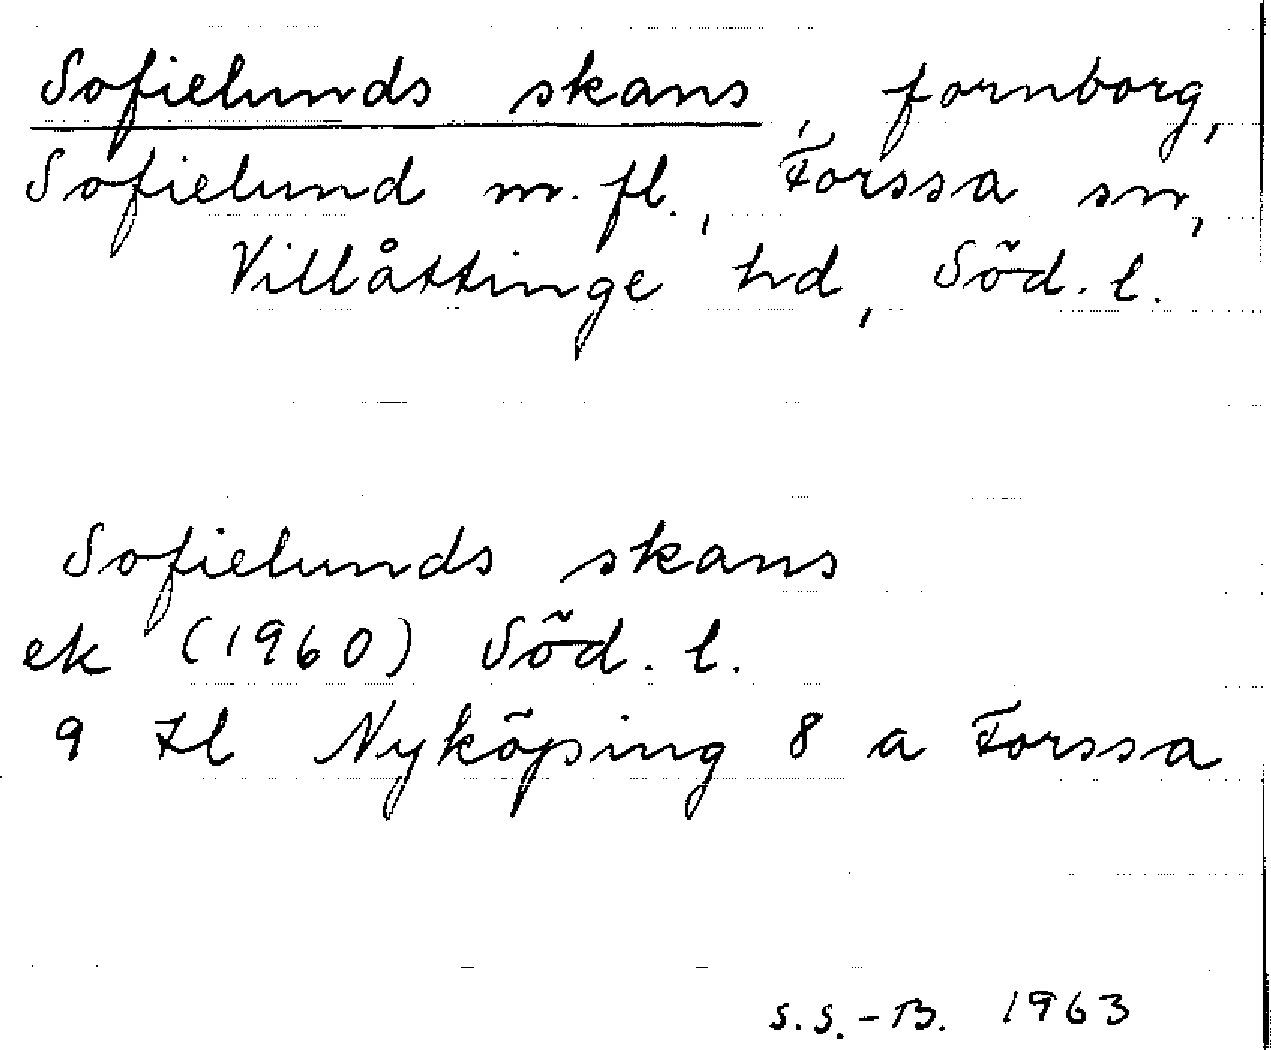 Sofielunds skans, fornborg,
Sofielund m. fl., Forssa sn,
Villåttinge hd, Söd. l.
Sofielunds skans
ek (1960) Söd. l.
9 Hl Nyköping 8 a Forssa
S.S.-B. 1963